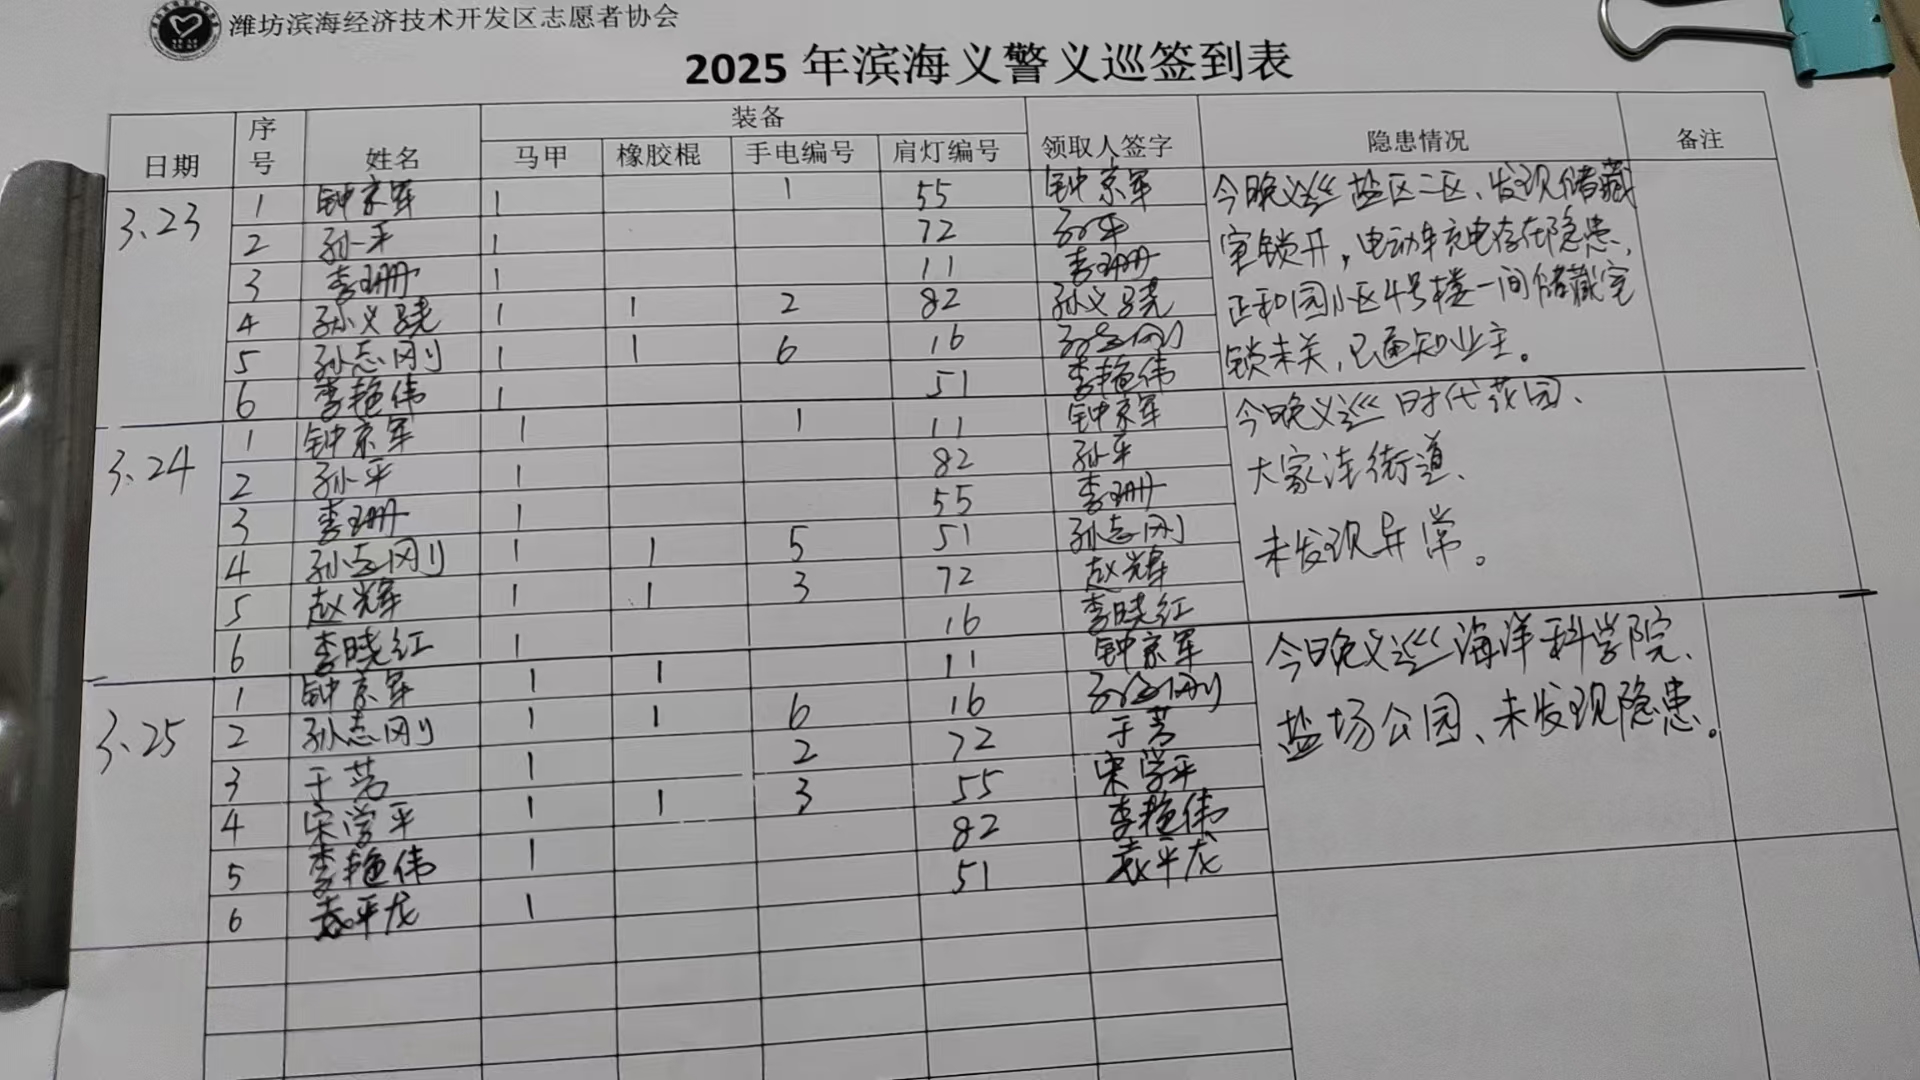 潍坊滨海经济技术开发区志愿者协会
2025 年滨海义警义巡签到表
日期 序号 姓名 装备 领取人签字 隐患情况 备注
马甲 橡胶棍 手电编号 肩灯编号
3.23 1 钟京军 1 1 55 钟京军
2 孙平 1 72 孙平
3 李珊 1 11 李珊
4 孙义骁 1 1 2 82 孙义骁
5 孙志刚 1 1 6 16 孙志刚
6 李艳伟 1 51 李艳伟
今晚义巡盐区二区、发现储藏
室锁开，电动车充电存在隐患，
正和园小区4号楼一间储藏室
锁未关，已通知业主。
3.24 1 钟京军 1 1 11 钟京军
2 孙平 1 82 孙平
3 李珊 1 55 李珊
4 孙志刚 1 1 5 51 孙志刚
5 赵辉 1 1 3 72 赵辉
6 李晓红 1 16 李晓红
今晚义巡时代花园、
大家洼街道、
未发现异常。
3.25 1 钟京军 1 1 11 钟京军
2 孙志刚 1 1 6 16 孙志刚
3 于芳 1 2 72 于芳
4 宋学平 1 1 3 55 宋学平
5 李艳伟 1 82 李艳伟
6 袁平龙 1 51 袁平龙
今晚义巡海洋科学院、
盐场公园、未发现隐患。